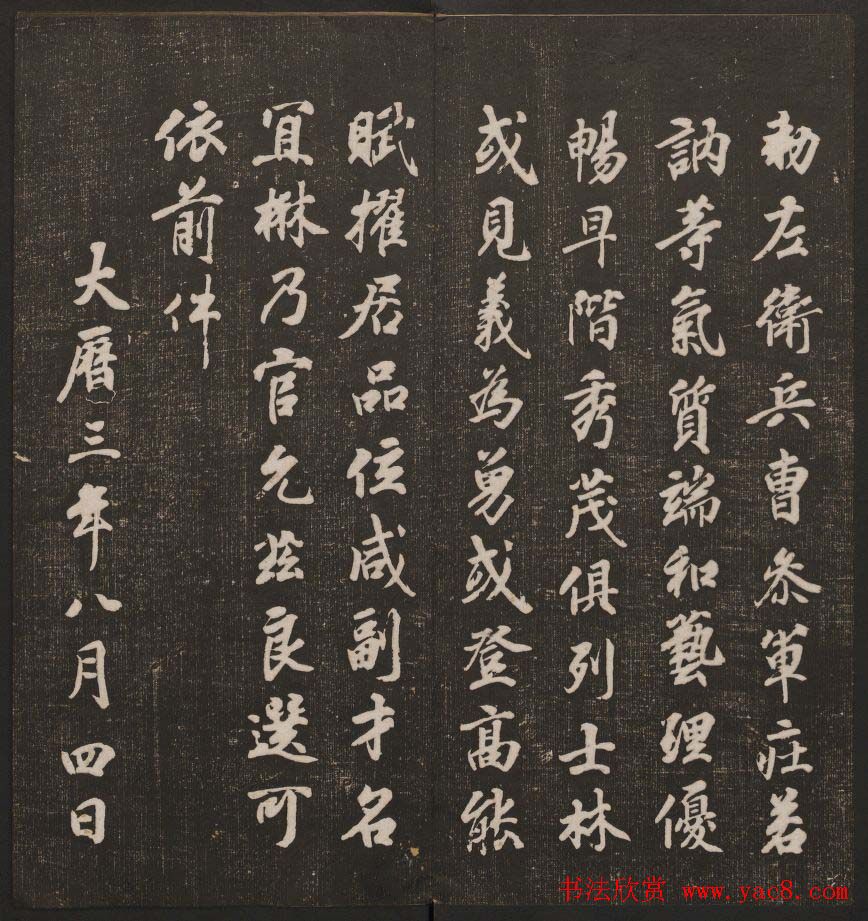 勅左衛兵曹參軍莊若
訥等氣質端和藝理優
暢早階秀茂俱列士林
或見義為勇或登高能
賦擢居品位咸副才名
宜楙乃官允茲良選可
依前件
大曆三年八月四日
书法欣赏 www.yac8.com